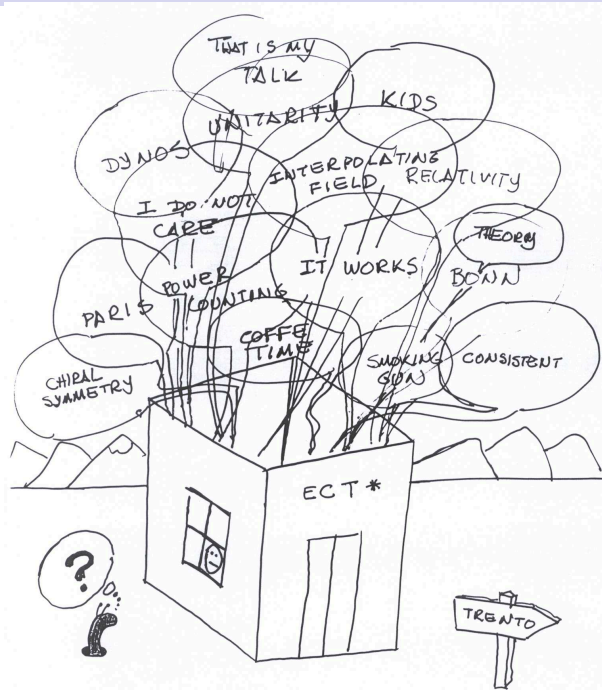 THAT IS MY
TALK
UNITARITY
KIDS
DYNOS
INTERPOLATING
FIELD
RELATIVITY
I DO NOT
CARE
THEORY
IT WORKS
BONN
POWER
COUNTING
PARIS
COFFE
TIME
SMOKING
GUN
CONSISTENT
CHIRAL
SYMMETRY
ECT*
?
TRENTO